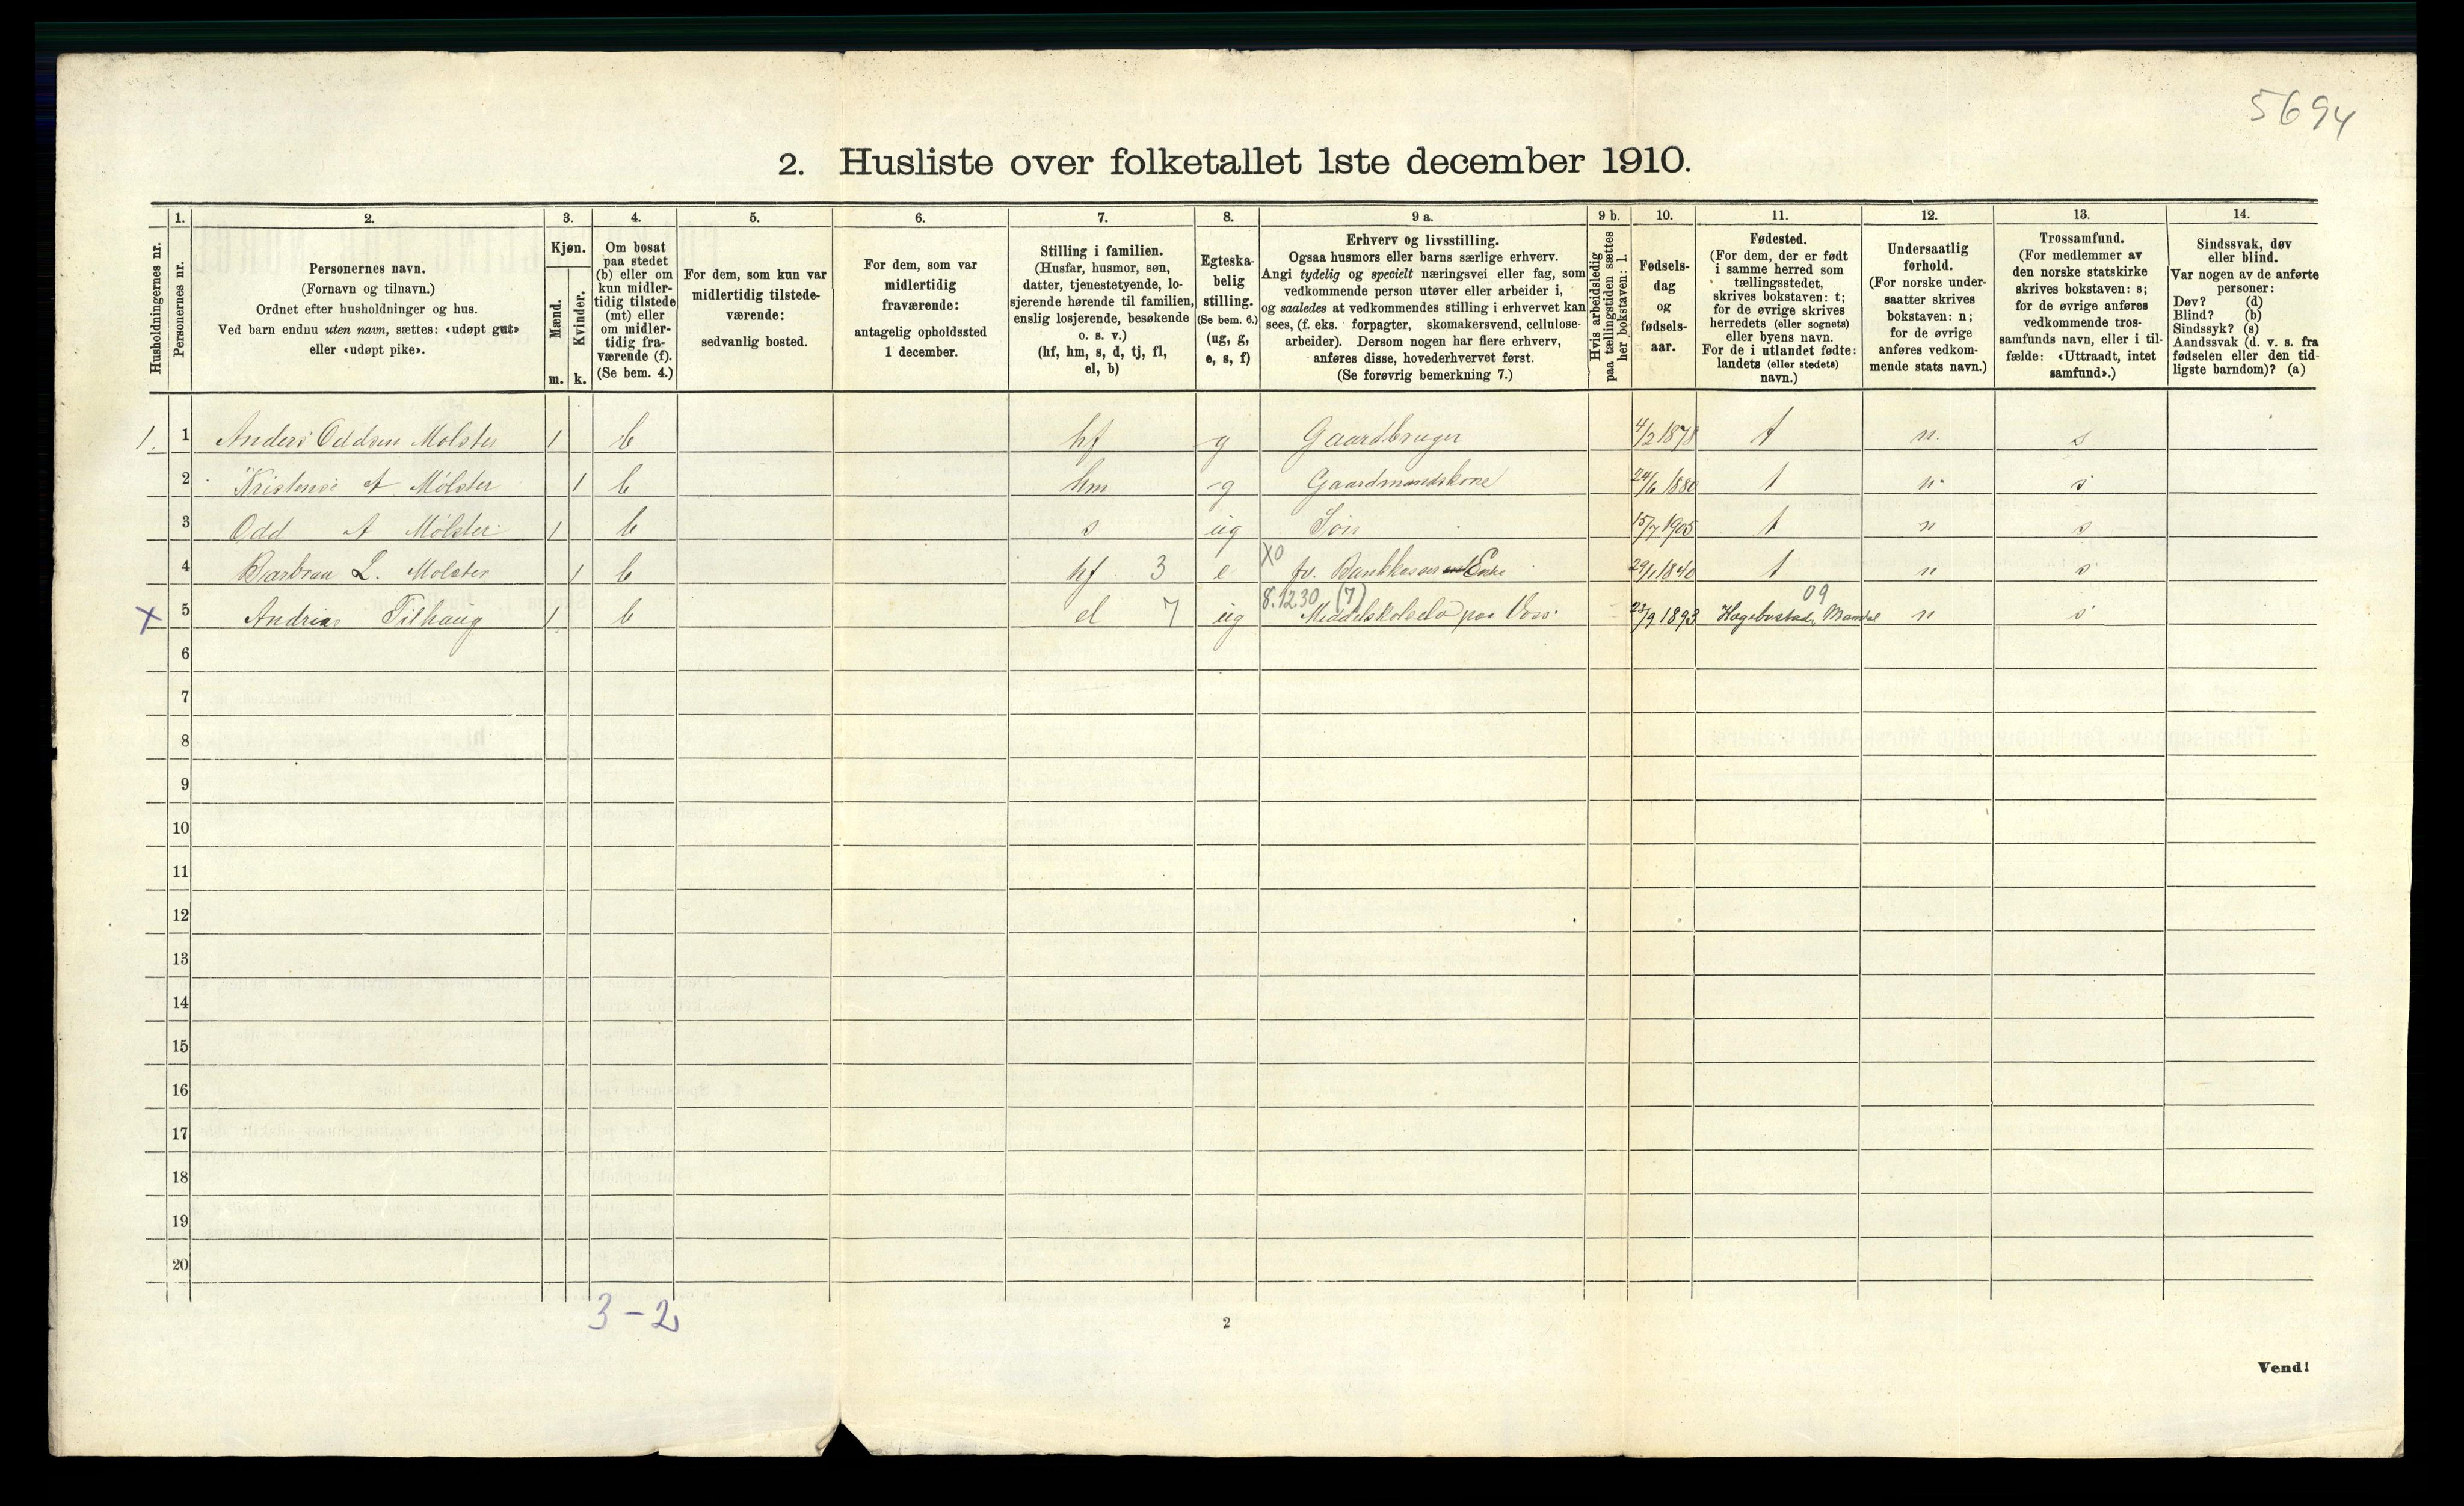 5694
2. Husliste over folketallet 1ste december 1910.
Husholdningernes nr.
1.
Personernes nr.
2.
Personernes navn.
(Fornavn og tilnavn.)
Ordnet efter husholdninger og hus.
Ved barn endnu uten navn, sættes: «udøpt gut»
eller «udøpt pike».
3.
Kjøn.
Mænd.
m.
Kvinder.
k.
4.
Om bosat
paa stedet
(b) eller om
kun midler-
tidig tilstede
(mt) eller
om midler-
tidig fra-
værende (f).
(Se bem. 4.)
5.
For dem, som kun var
midlertidig tilstede-
værende:
sedvanlig bosted.
6.
For dem, som var
midlertidig
fraværende:
antagelig opholdssted
1 december.
7.
Stilling i familien.
(Husfar, husmor, søn,
datter, tjenestetyende, lo-
sjerende hørende til familien,
enslig losjerende, besøkende
o. s. v.)
(hf, hm, s, d, tj, fl,
el, b)
8.
Egteska-
belig
stilling.
(Se bem. 6.)
(ug, g,
e, s, f)
9 a.
Erhverv og livsstilling.
Ogsaa husmors eller barns særlige erhverv.
Angi tydelig og specielt næringsvei eller fag, som
vedkommende person utøver eller arbeider i,
og saaledes at vedkommendes stilling i erhvervet kan
sees, (f. eks. forpagter, skomakersvend, cellulose-
arbeider). Dersom nogen har flere erhverv,
anføres disse, hovederhvervet først.
(Se forøvrig bemerkning 7.)
9 b.
Hvis arbeidsledig
paa tællingstiden sættes
her bokstaven: l.
10.
Fødsels-
dag
og
fødsels-
aar.
11.
Fødested.
(For dem, der er født
i samme herred som
tællingsstedet,
skrives bokstaven: t;
for de øvrige skrives
herredets (eller sognets)
eller byens navn.
For de i utlandet fødte:
landets (eller stedets)
navn.)
12.
Undersaatlig
forhold.
(For norske under-
saatter skrives
bokstaven: n;
for de øvrige
anføres vedkom-
mende stats navn.)
13.
Trossamfund.
(For medlemmer av
den norske statskirke
skrives bokstaven: s;
for de øvrige anføres
vedkommende tros-
samfunds navn, eller i til-
fælde: «Uttraadt, intet
samfund».)
14.
Sindssvak, døv
eller blind.
Var nogen av de anførte
personer:
Døv? (d)
Blind? (b)
Sindssyk? (s)
Aandssvak (d. v. s. fra
fødselen eller den tid-
ligste barndom)? (a)
1. 1 Anders Oddsen Mølster 1 b hf g Gaardbruger 4/2 1878 t n. s
2 Kristense A Mølster 1 b hm g Gaardmandskone 24/6 1880 t n s
3 Odd A Mølster 1 b s ug Søn 15/7 1905 t n s
4 Barbrau L. Mølster 1 b hf 3 e X0 fv. Bankkasserer Enke 29/1 1840 t n s
X 5 Andrias Tilhaug 1 b el 7 ug 8.12.30 (7) Middelskolselev paa Voss. 23/9 1893 09 Hægebostad, Mandal n s
6
7
8
9
10
11
12
13
14
15
16
17
18
19
20
3 – 2
2
Vend!